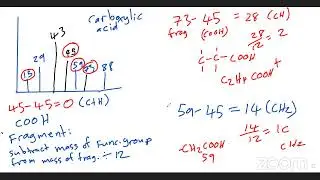 carboxylic
acid
43
29
45
15
59
73
88
45-45=0 (C+H)
COOH
Fragment:
subtract mass of func.group
from mass of frag. ÷12
73-45 = 28 (CH)
frag (COOH)
28/12 = 2
C-C-COOH
C2H4 COOH+
59-45 = 14 (CH2)
14/12 = 1C
CH2COOH
59
CH2
zoom